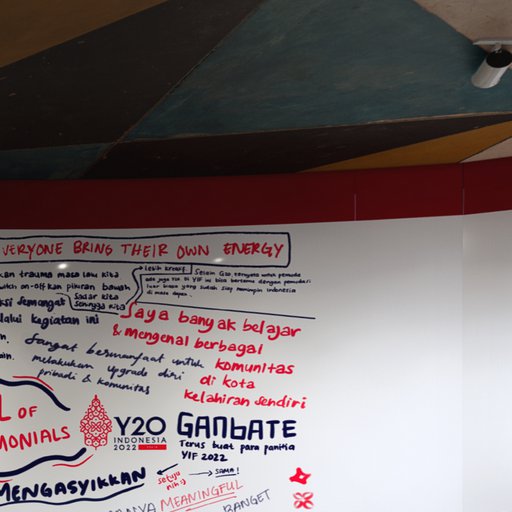 EVERYONE BRING THEIR OWN ENERGY
kan trauma masa lalu kita
on-off kan pikiran bawah
sadar kita
sehingga kita
semangat
lalui kegiatan ini
lebih kreatif.
Selain G20, ternyata untuk pemuda
ada juga Y20 di YIF ini bisa bertemu dengan pemudari
luar biasa yang sudah siap memimpin Indonesia
di masa depan.
Saya banyak belajar
& mengenal berbagai
komunitas
di kota
kelahiran sendiri
Sangat bermanfaat untuk
melakukan upgrade diri
pribadi & komunitas
L OF
MONIALS
Y20
INDONESIA
2022
GANBATE
Terus buat para panitia
YIF 2022
MENGASYIKKAN
setuju
nih :)
SAMA!
NYA MEANINGFUL
BANGET